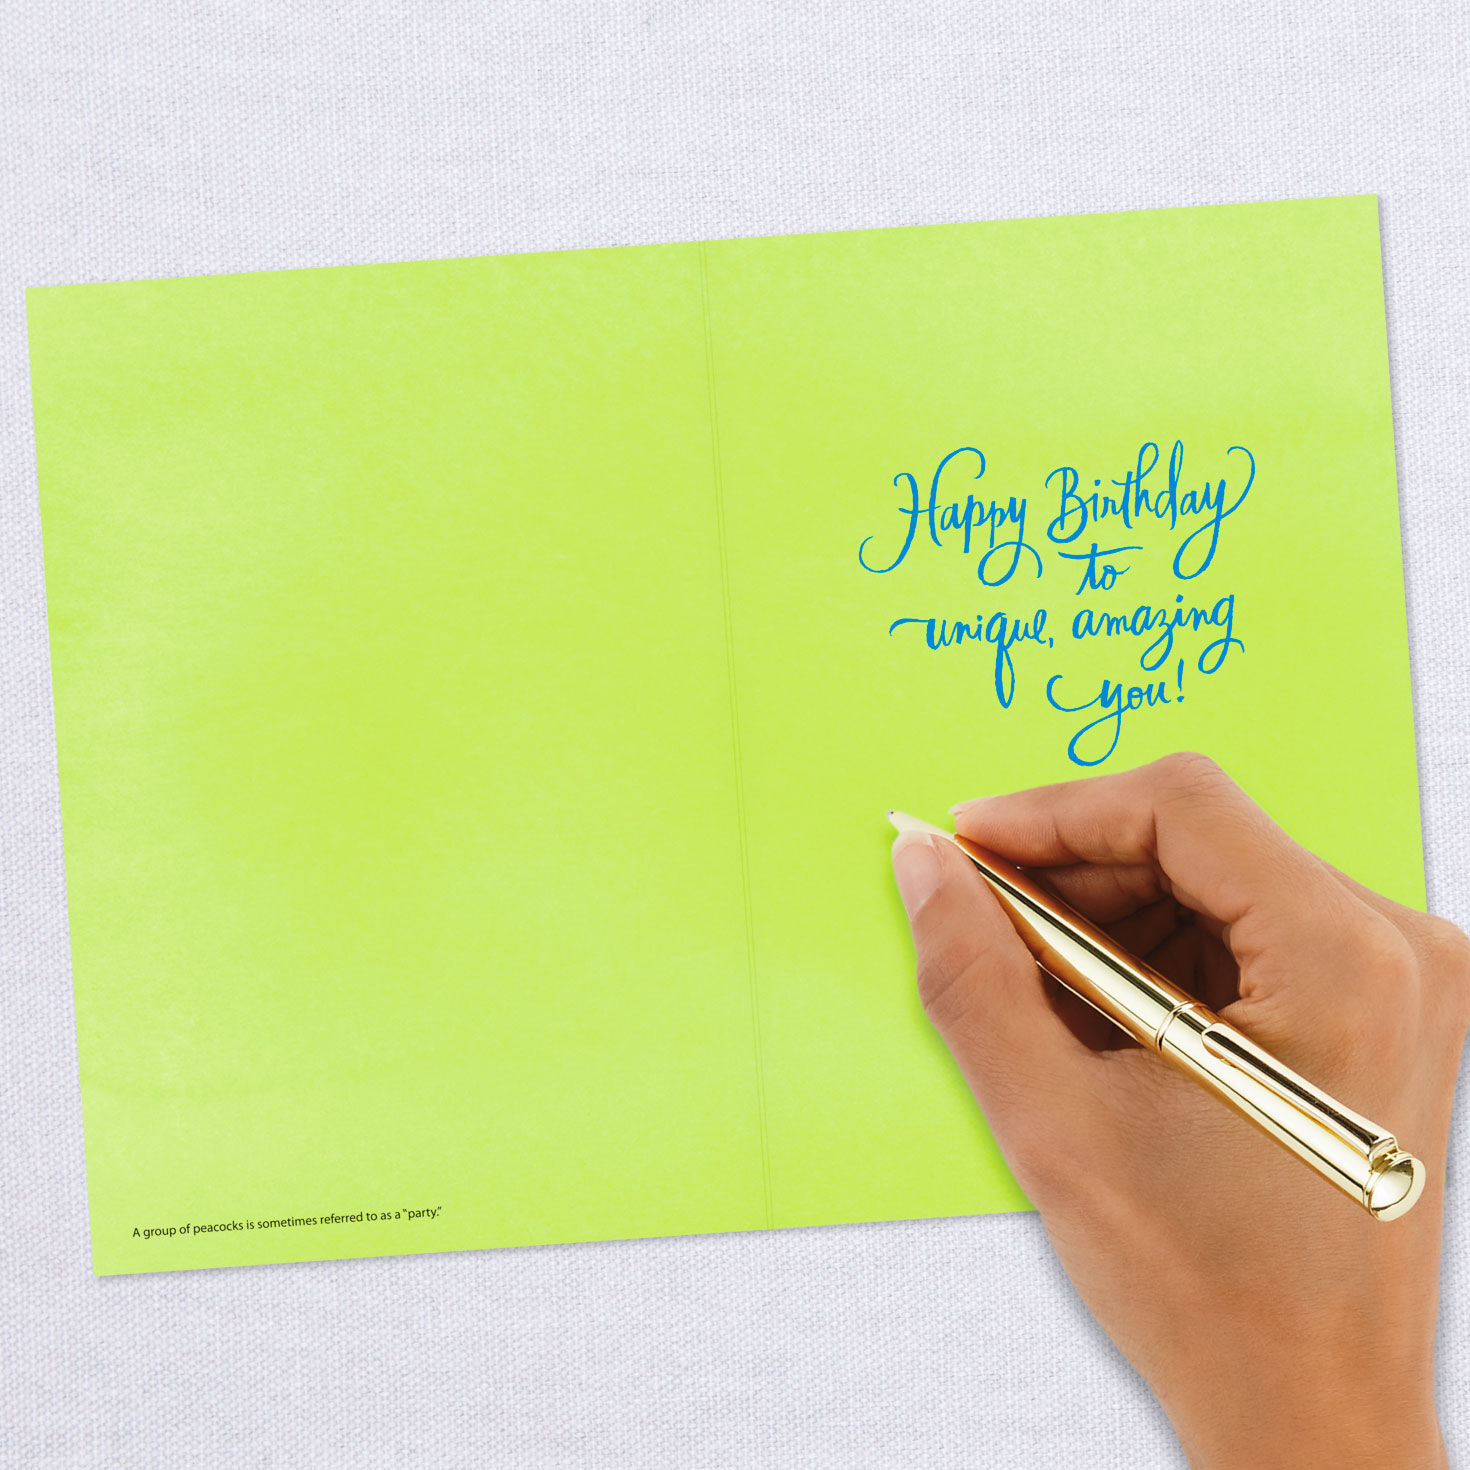 Happy Birthday
to
unique, amazing
you!
A group of peacocks is sometimes referred to as a "party."